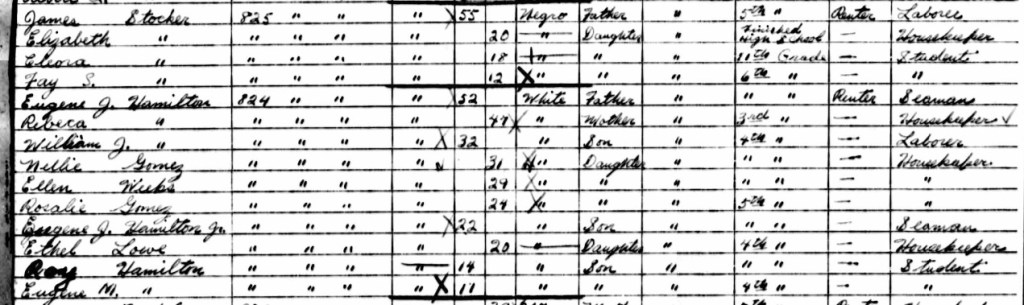 James Stocker 825 " " " 55 Negro Father " 5th " Renter Laborer
Elizabeth " " " " " " 20 — Daughter " Finished High School — Housekeeper
Eleora " " " " " " 18 — " " 11th Grade — Student
Fay S. " " " " " " 12 " " " 6th " — "
Eugene J. Hamilton 824 " " " " 52 White Father " " " Renter Seaman
Rebeca " " " " " " 49 " Mother " 3rd " — Housekeeper
William J. " " " " " " 32 " Son " 4th " — Laborer
Nellie Gomez " " " " " 31 " Daughter " " " — Housekeeper
Ellen Weeks " " " " " 29 " " " " " — "
Rosalie Gomez " " " " " 24 " " " 5th " — "
Eugene J. Hamilton Jr. " " " " " 22 " Son " " " — Seaman
Ethel Lowe " " " " " 20 — Daughter " 4th " — Housekeeper
Hamilton " " " " — 14 " Son " " " — Student
Eugene M. " " " " " " 11 " " " 4th " — "